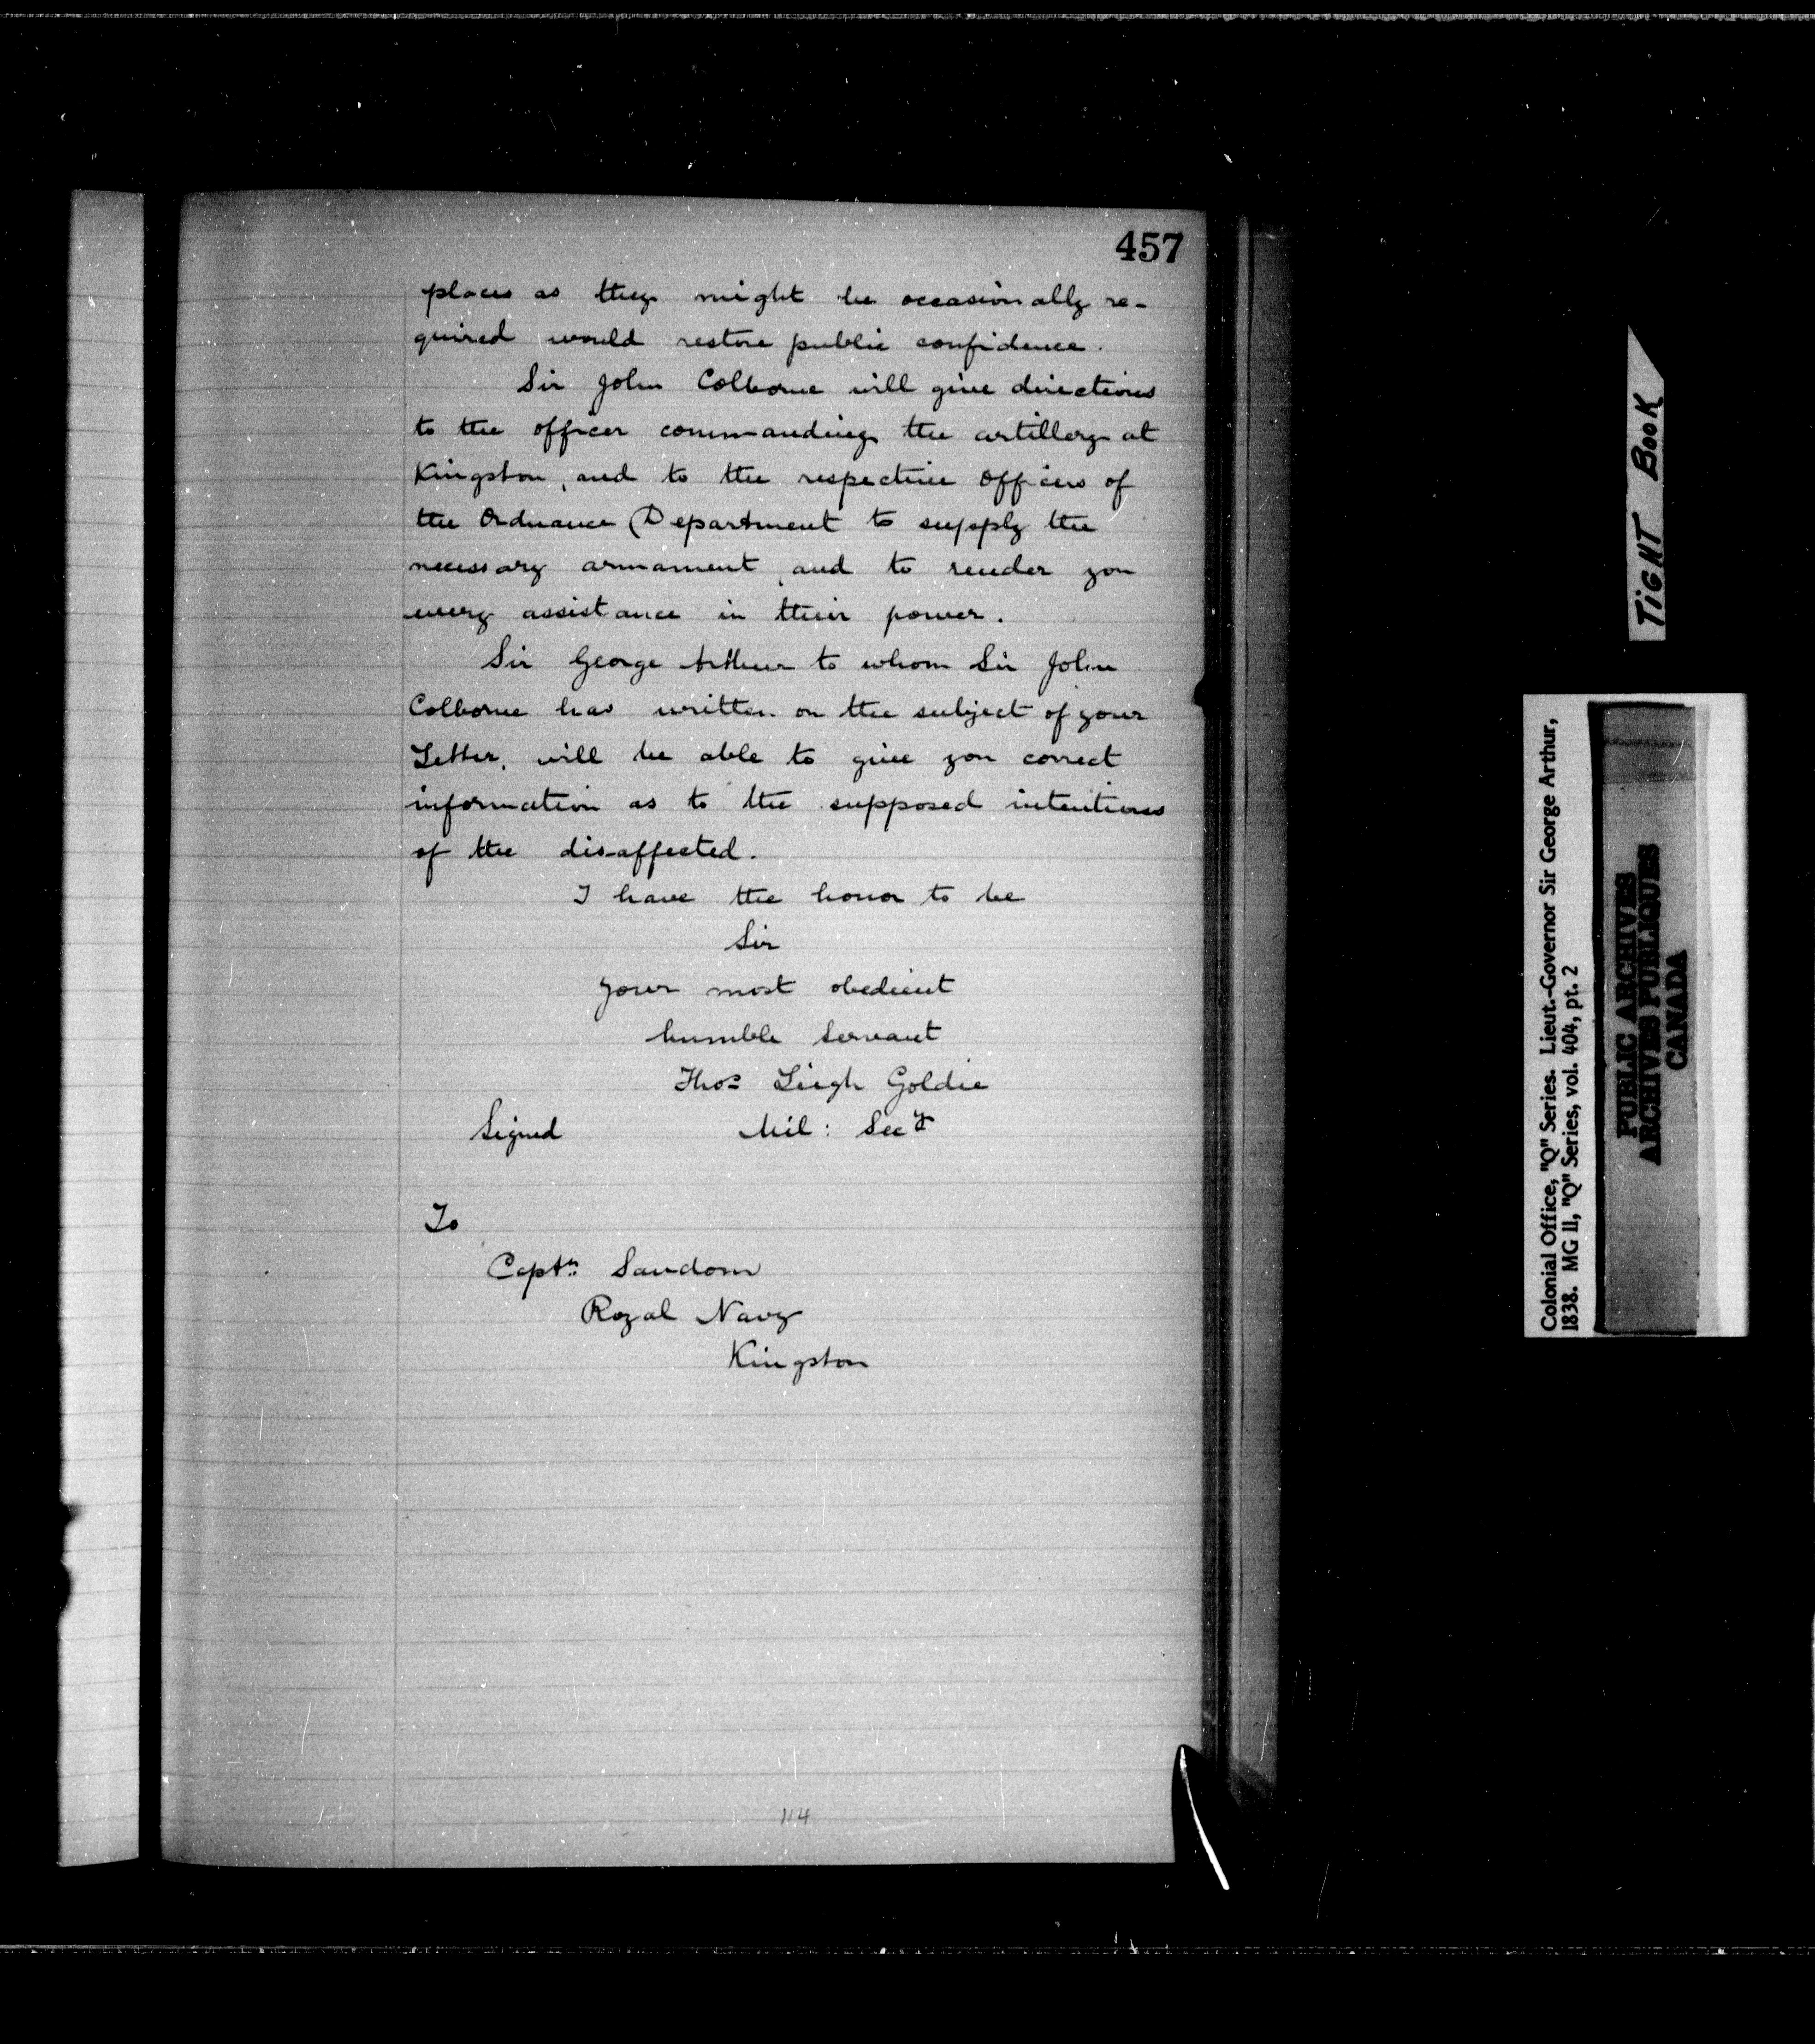 457
places as they might be occasionally re-
quired would restore public confidence.
Sir John Colborne will give directions
to the officer commanding the artillery at
Kingston, and to the respective Officers of
the Ordnance Department to supply the
necessary armament, and to render you
every assistance in their power.
Sir George Arthur to whom Sir John
Colborne has written on the subject of your
Letter, will be able to give you correct
information as to the supposed intentions
of the disaffected.
I have the honor to be
Sir
your most obedient
humble servant
Thos Leigh Goldie
Signed Mil: Secy
To
Captn Sandom
Royal Navy
Kingston
114
TIGHT BOOK
Colonial Office, "Q" Series. Lieut.-Governor Sir George Arthur,
1838. MG 11, "Q" Series, vol. 404, pt. 2
PUBLIC ARCHIVES
ARCHIVES PUBLIQUES
CANADA